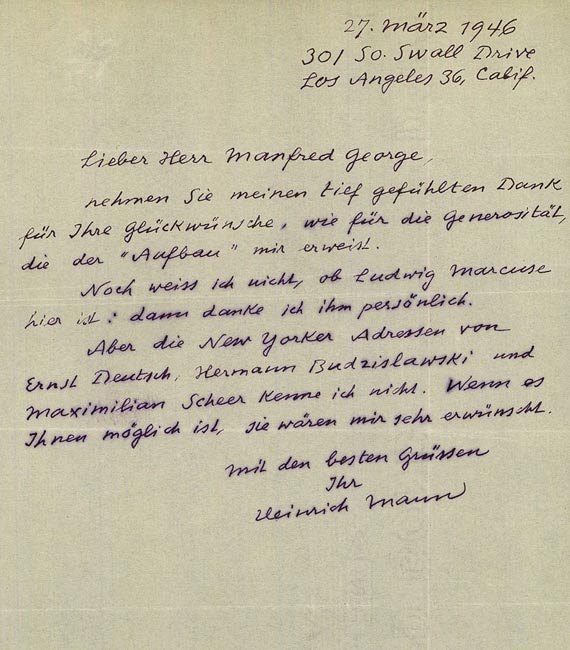 27. März 1946
301 So. Swall Drive
Los Angeles 36, Calif.
Lieber Herr Manfred George,
nehmen Sie meinen tief gefühlten Dank
für Ihre Glückwünsche, wie für die Generosität,
die der "Aufbau" mir erweist.
Noch weiss ich nicht, ob Ludwig Marcuse
hier ist: dann danke ich ihm persönlich.
Aber die New Yorker Adressen von
Ernst Deutsch, Hermann Budzislawski und
Maximilian Scheer kenne ich nicht. Wenn es
Ihnen möglich ist, sie wären mir sehr erwünscht.
Mit den besten Grüssen
Ihr
Heinrich Mann